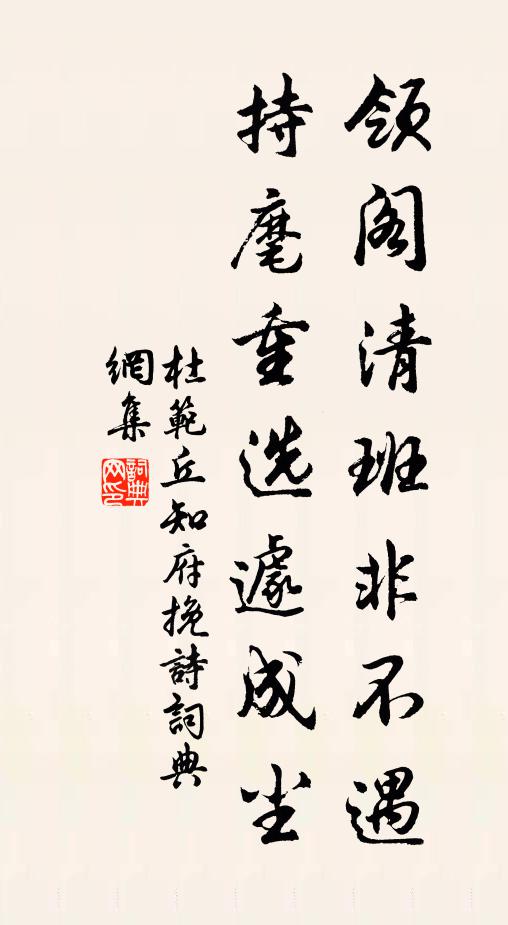 领阁清班非不遇
持麾重选遽成尘
杜範丘知府挽詩詞典
網集
詞典
网印